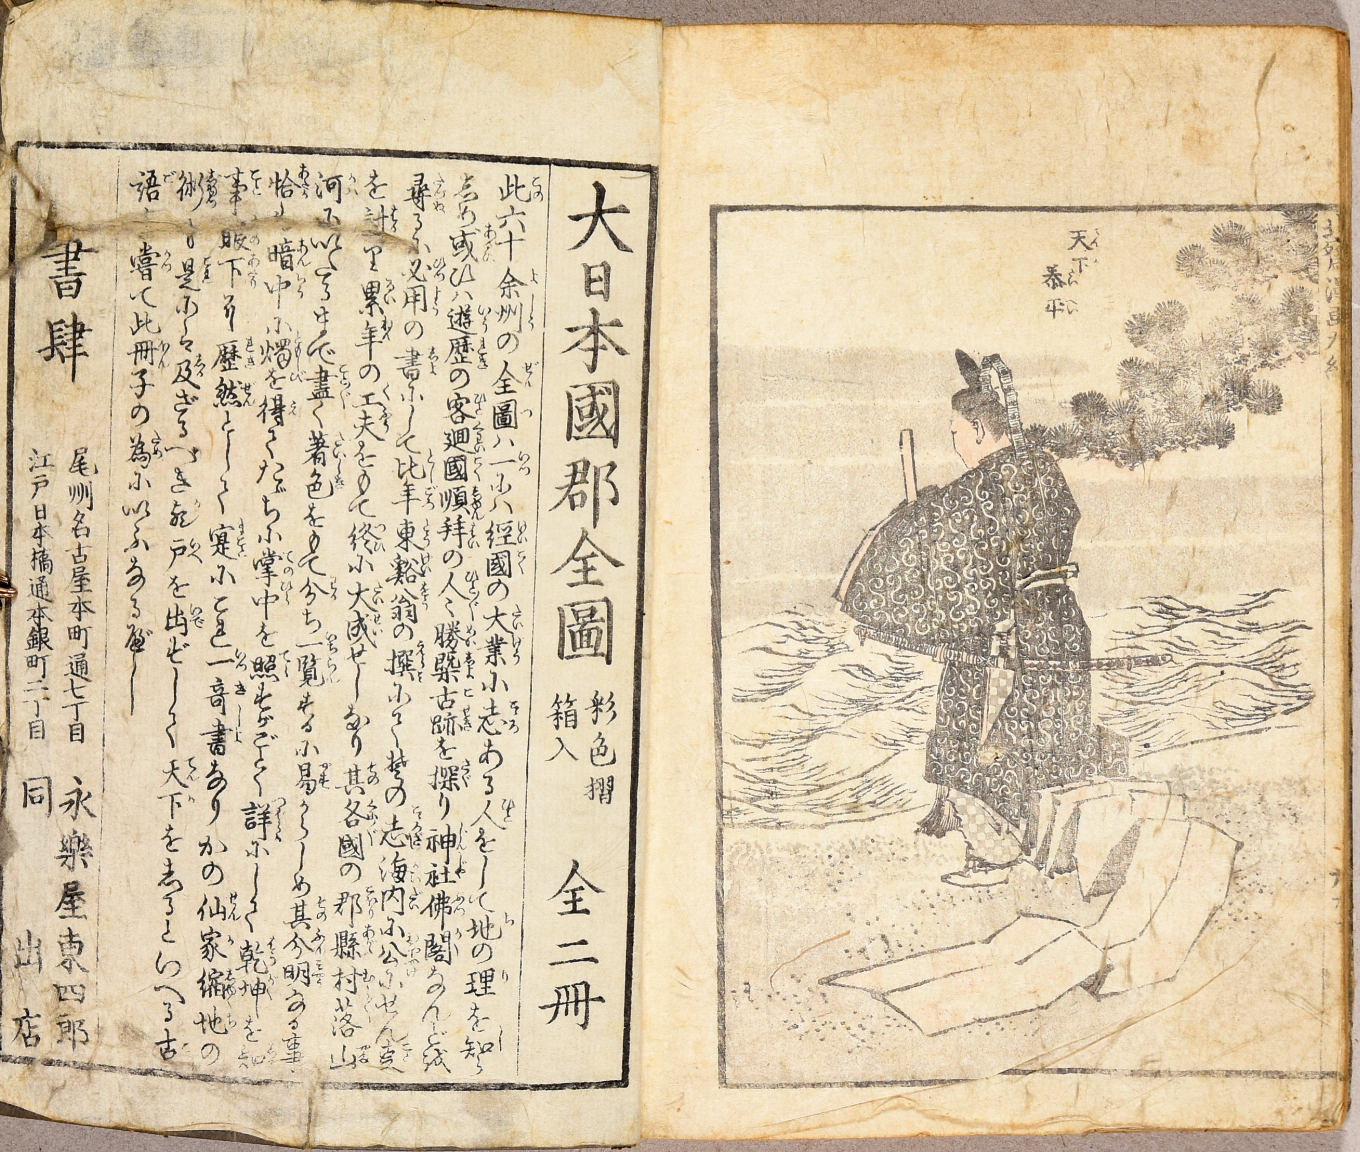 天下
泰平
大日本國郡全圖 彩色摺 箱入 全二冊
此六十余州の全圖ハ一にハ經國の大業に志ある人をして地の理を知ら
しめ或ひハ遊歴の客廻國順拜の人々勝槩古跡を探り神社佛閣なんどを
尋るに必用の書にして比年東谿翁の撰にて其の志海内に公にせん
を計り累年の工夫をもて終に大成せしなり其各國の郡縣村落山
河にいたるまで盡く著色をもて分ち一覧するに易からしめ其分明なる事
恰も暗中に燭を得てたゞちに掌中を照すがごとく詳にして乾坤を
事眼下に歴然として寔にこれ一奇書なりかの仙家縮地の
術も是には及ざるべき戸を出ずして天下をしるといへる古
語も嘗て此冊子の為にいふなるべし
書肆
尾州名古屋本町通七丁目 永樂屋東四郎
江戸日本橋通本銀町二丁目 同 出店